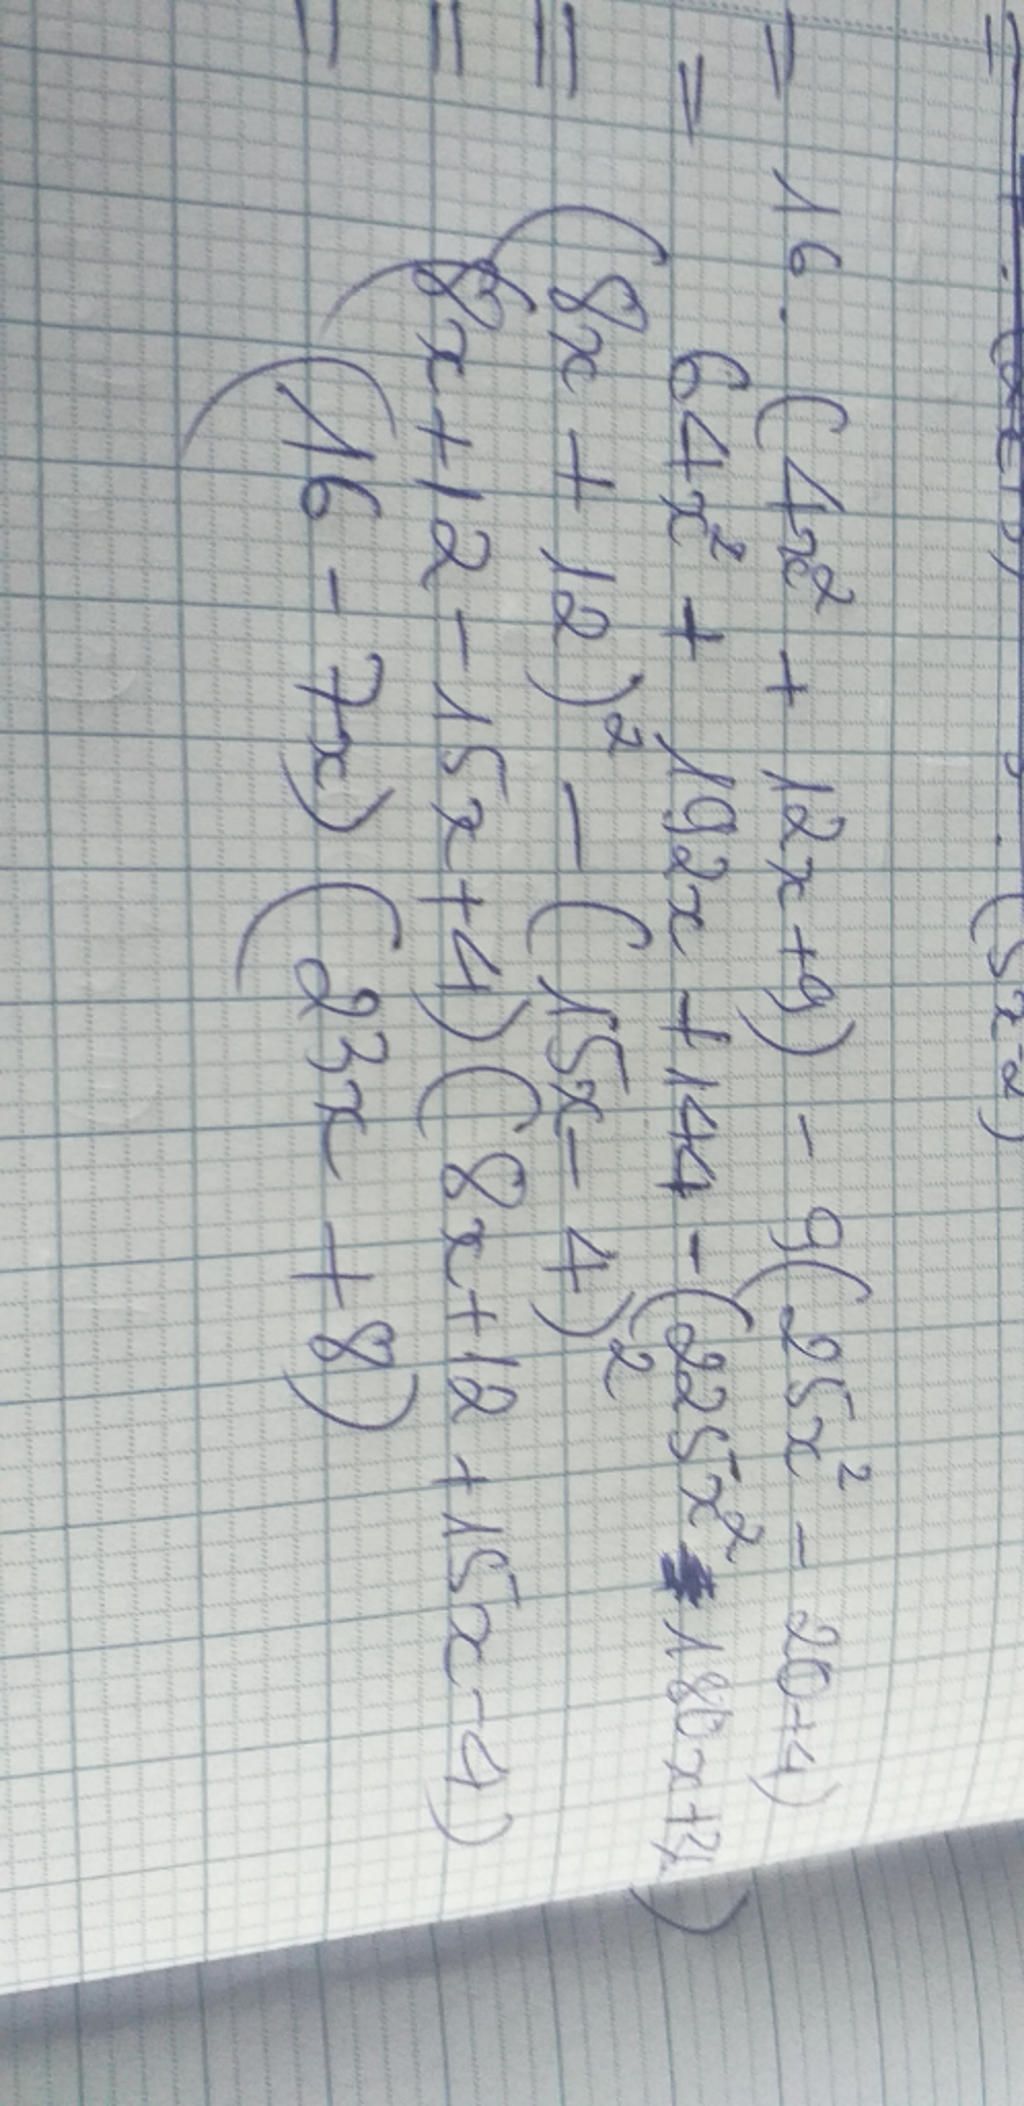 = 16 . (4x² + 12x + 9) - 9(25x² - 20+4)
= 64x² + 192x + 144 - (225x² 180x+
= (8x + 12)² - (15x - 4)²
= (8x + 12 - 15x + 4) (8x + 12 + 15x - 4)
= (16 - 7x) (23x + 8)